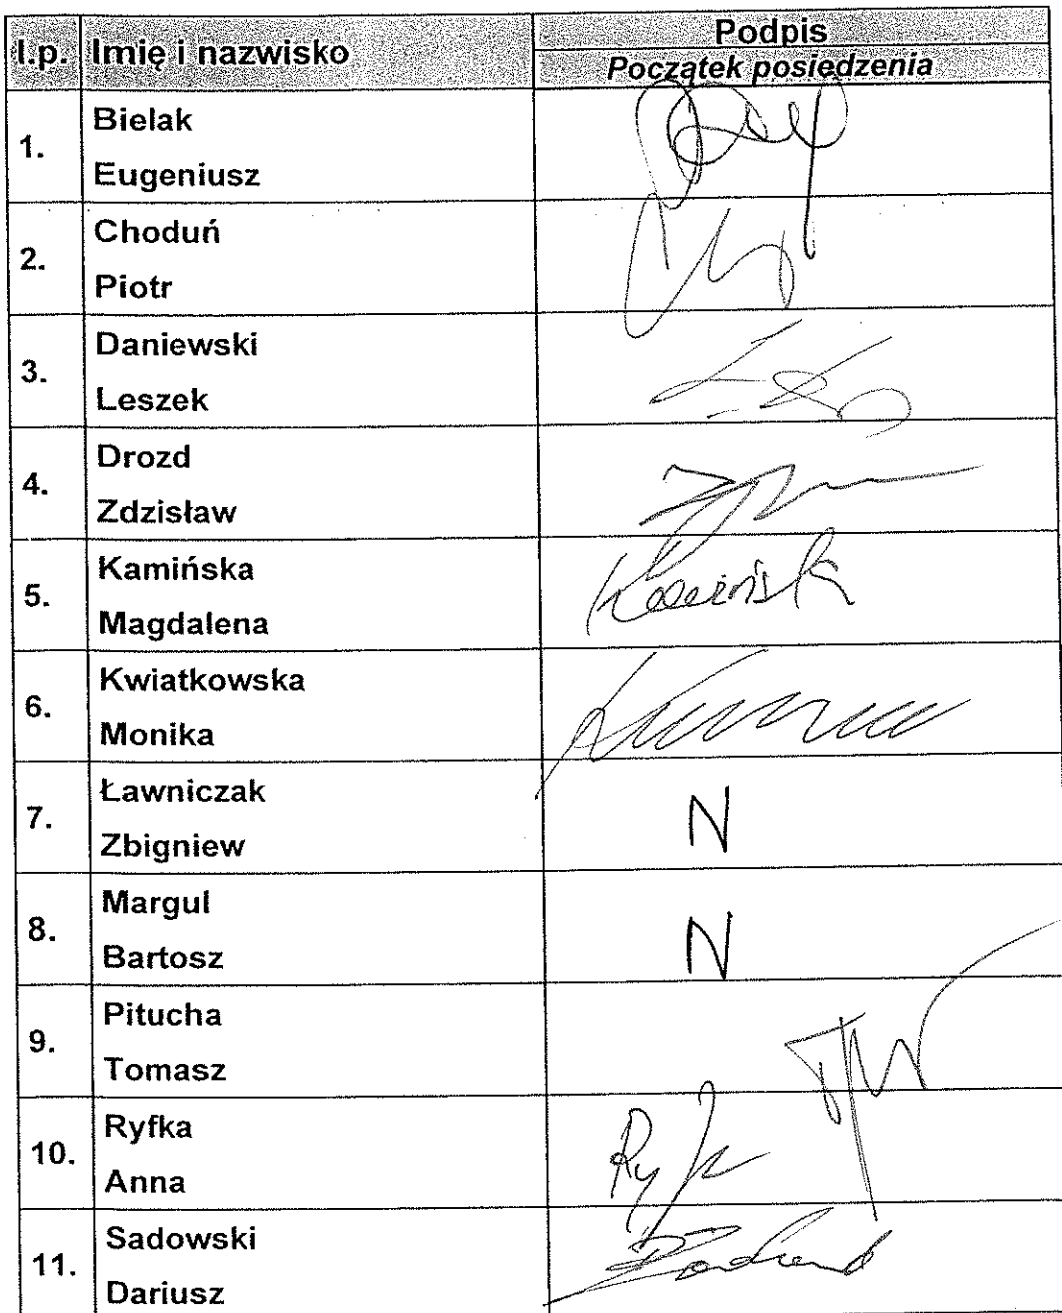 l.p. Imię i nazwisko Podpis
Początek posiedzenia
1. Bielak
Eugeniusz
2. Choduń
Piotr
3. Daniewski
Leszek
4. Drozd
Zdzisław
5. Kamińska
Magdalena
6. Kwiatkowska
Monika
7. Ławniczak
Zbigniew
N
8. Margul
Bartosz
N
9. Pitucha
Tomasz
10. Ryfka
Anna
11. Sadowski
Dariusz